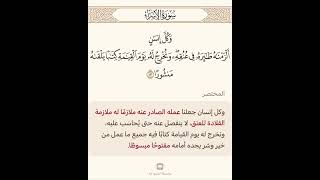 سُورَةُ الإِسْرَاءِ
وَكُلَّ إِنسَٰنٍ
أَلْزَمْنَٰهُ طَٰٓئِرَهُۥ فِى عُنُقِهِۦ ۖ وَنُخْرِجُ لَهُۥ يَوْمَ ٱلْقِيَٰمَةِ كِتَٰبًا يَلْقَىٰهُ
مَنشُورًا ١٣
المختصر
وكل إنسان جعلنا عمله الصادر عنه ملازمًا له ملازمة
القلادة للعنق، لا ينفصل عنه حتى يُحاسَب عليه،
ونخرج له يوم القيامة كتابًا فيه جميع ما عمل من
خير وشر يجده أمامه مفتوحًا مبسوطًا.